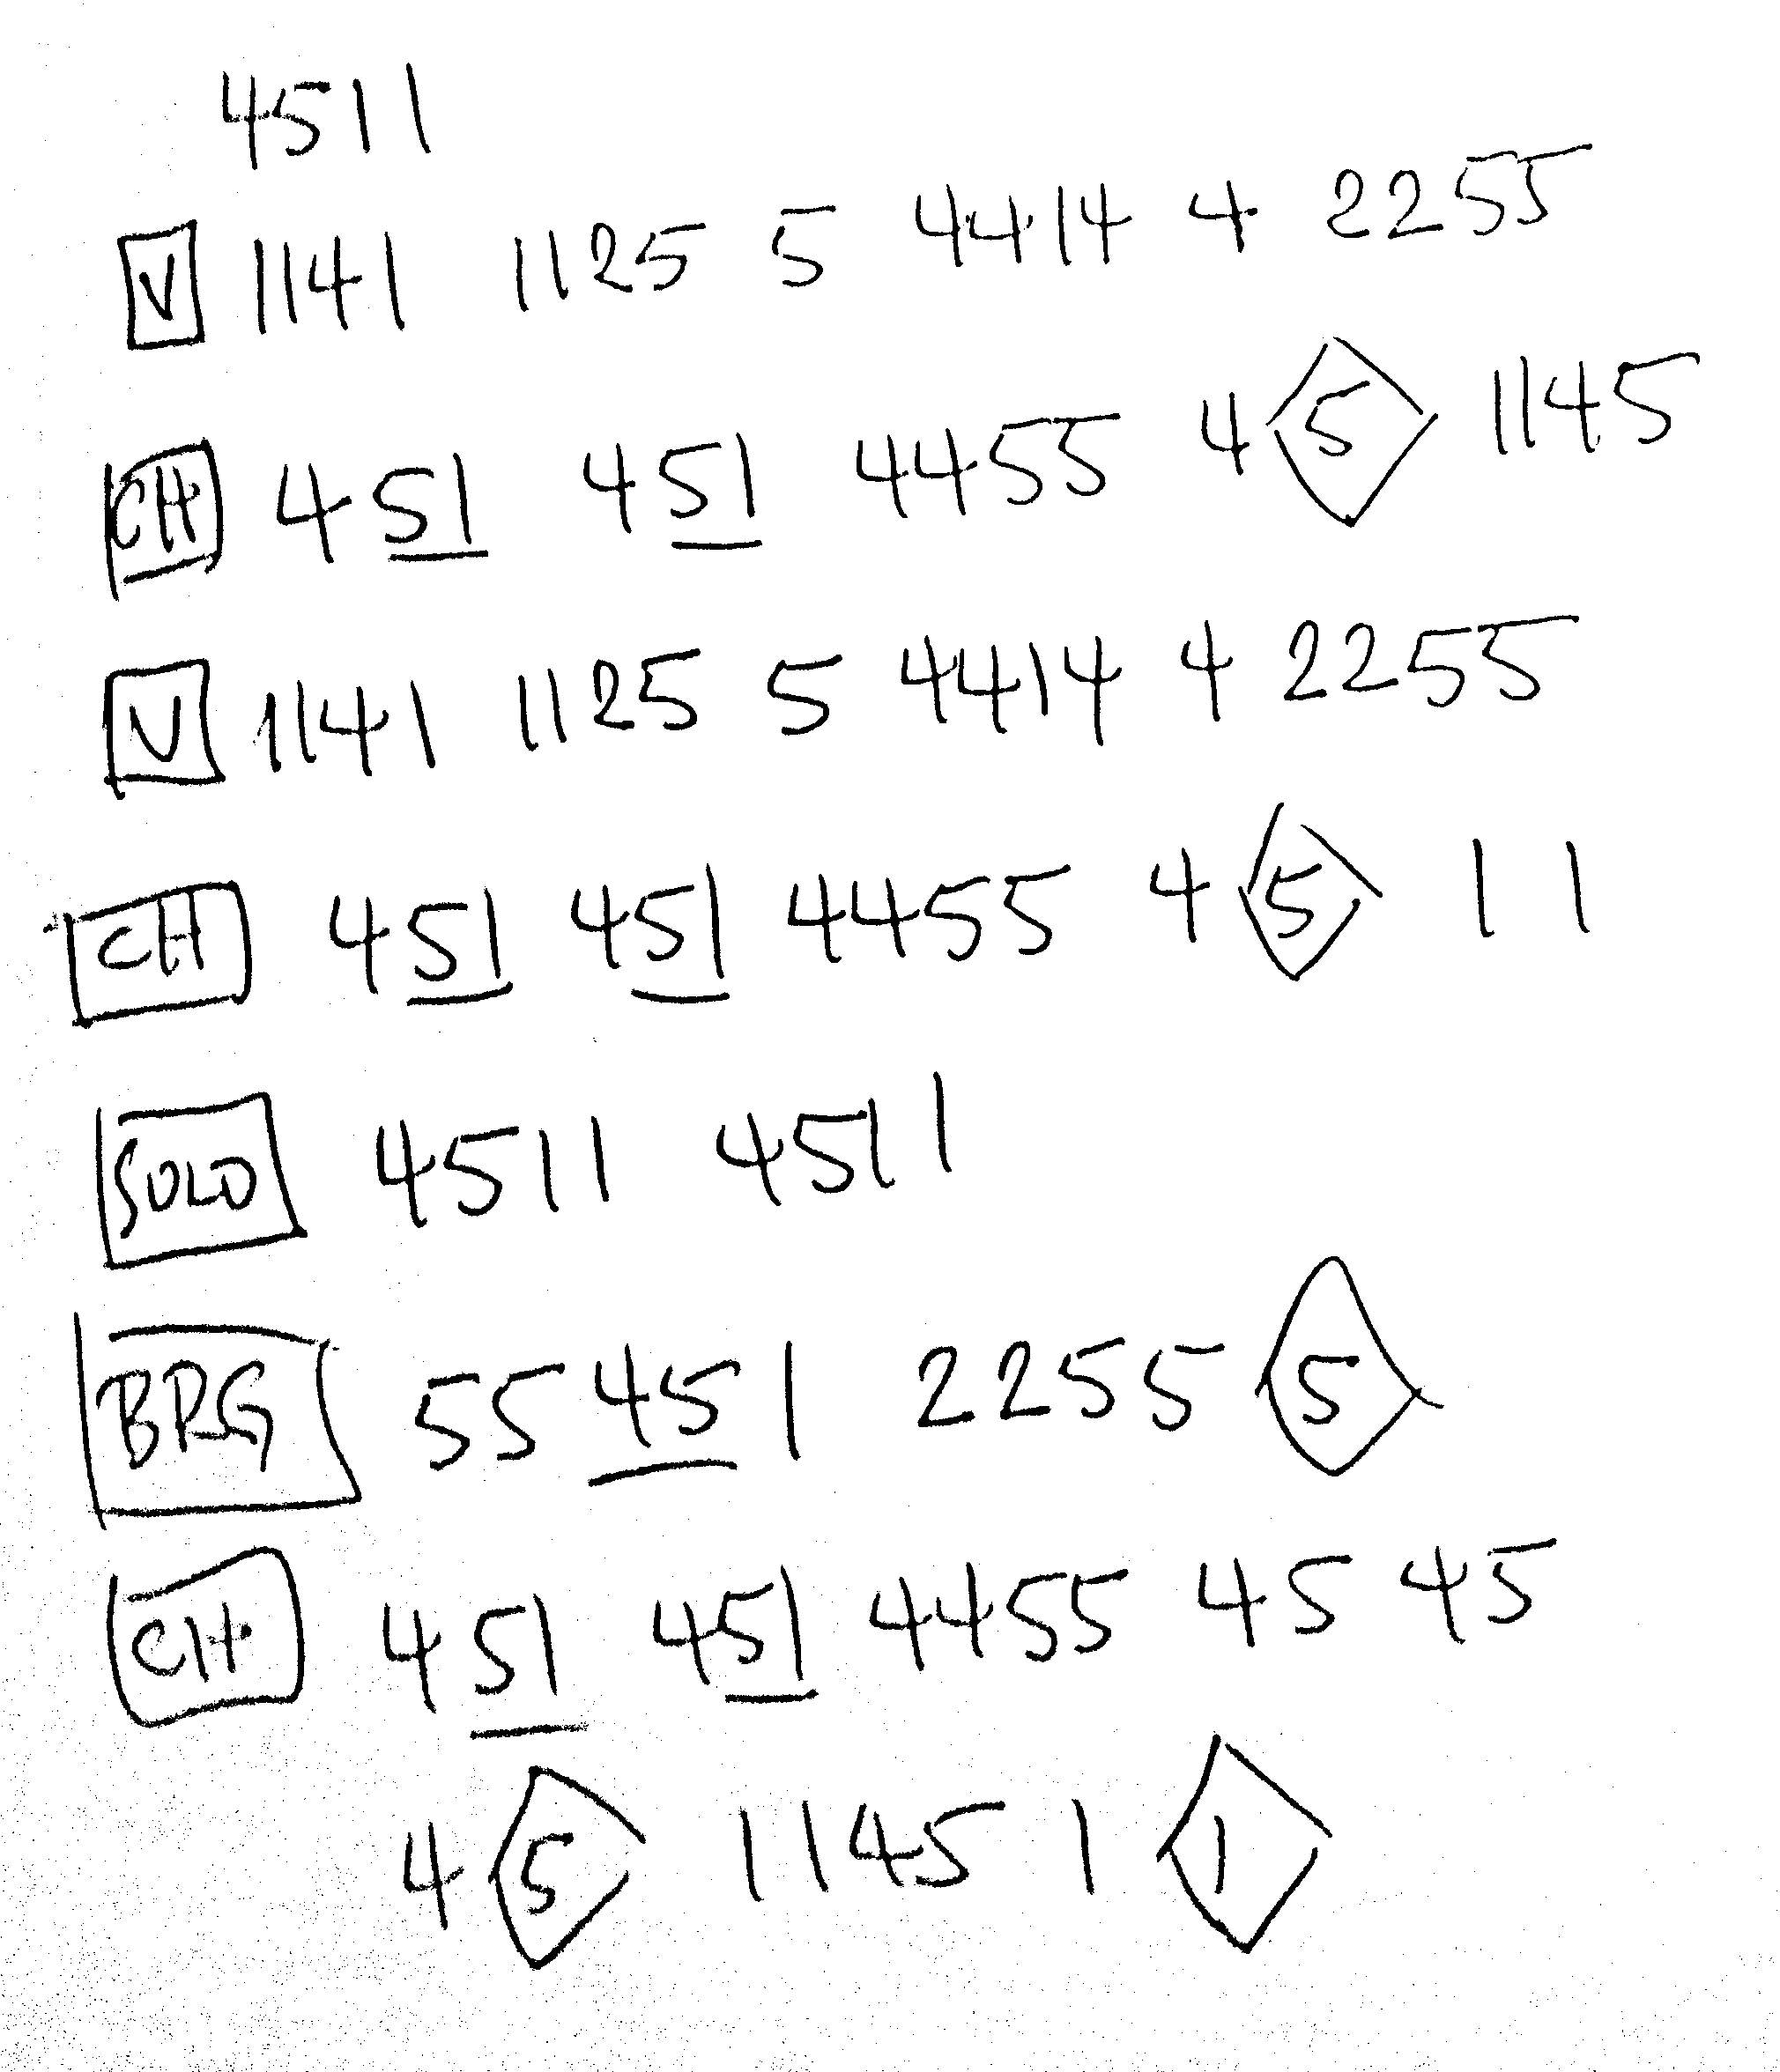 4511
V 1141 1125 5 4414 4 2255
CH 451 451 4455 4 5 1145
V 1141 1125 5 4414 4 2255
CH 451 451 4455 4 5 1 1
SOLO 4511 4511
BRG 55 45 1 2255 5
CH 451 451 4455 45 45
4 5 1145 1 1